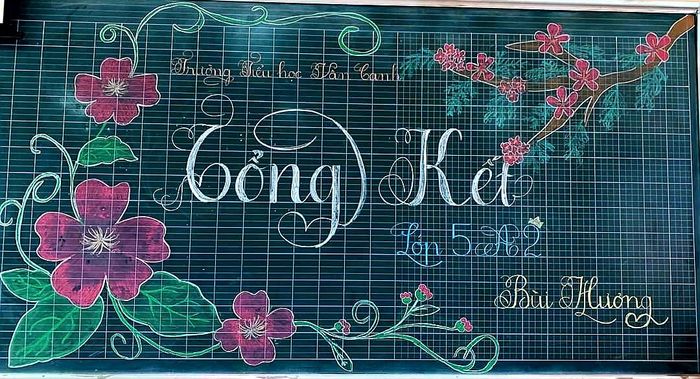 Trường Tiểu học Vân Canh
Tổng Kết
Lớp 5A2
Bùi Hương